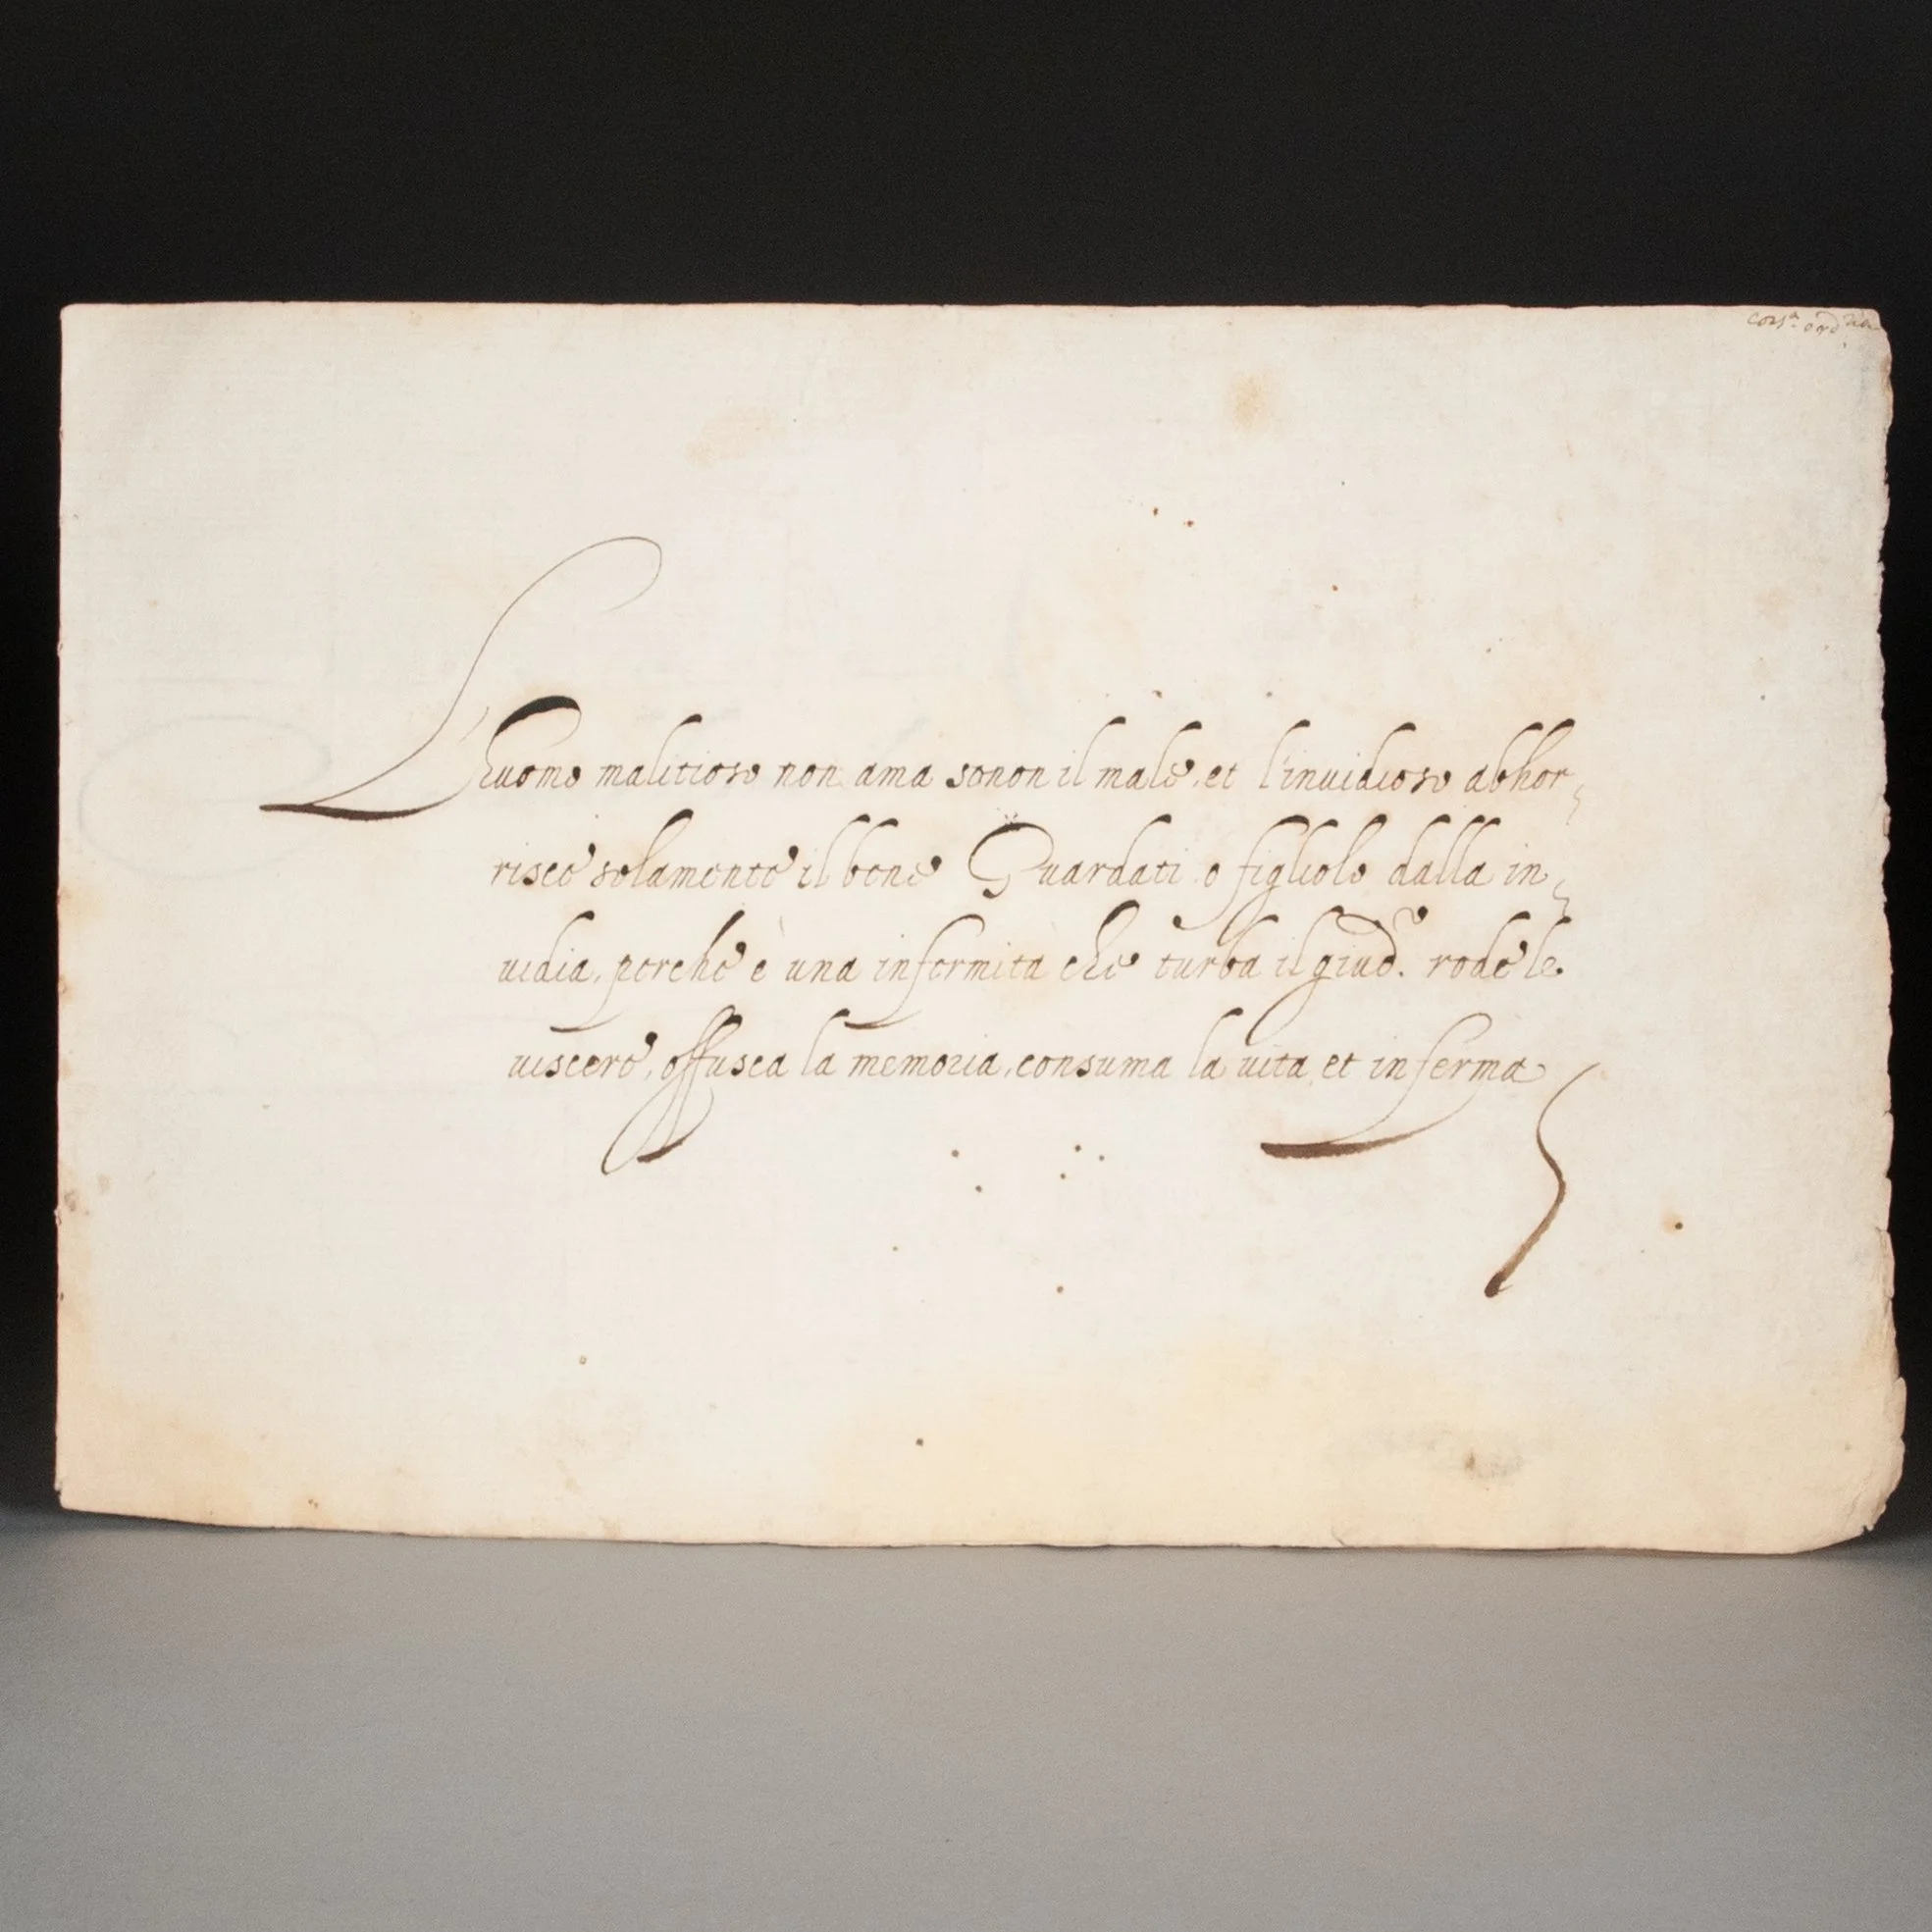 cors.ᵃ ordʳⁱᵃ
L'huomo malitioso non ama senon il male, et l'inuidioso abhor-
risce solamente il bene Guardati o figliolo dalla in-
uidia, perche è una infermità che turba il giud.º rode le
uiscere, offusca la memoria, consuma la uita, et inferma